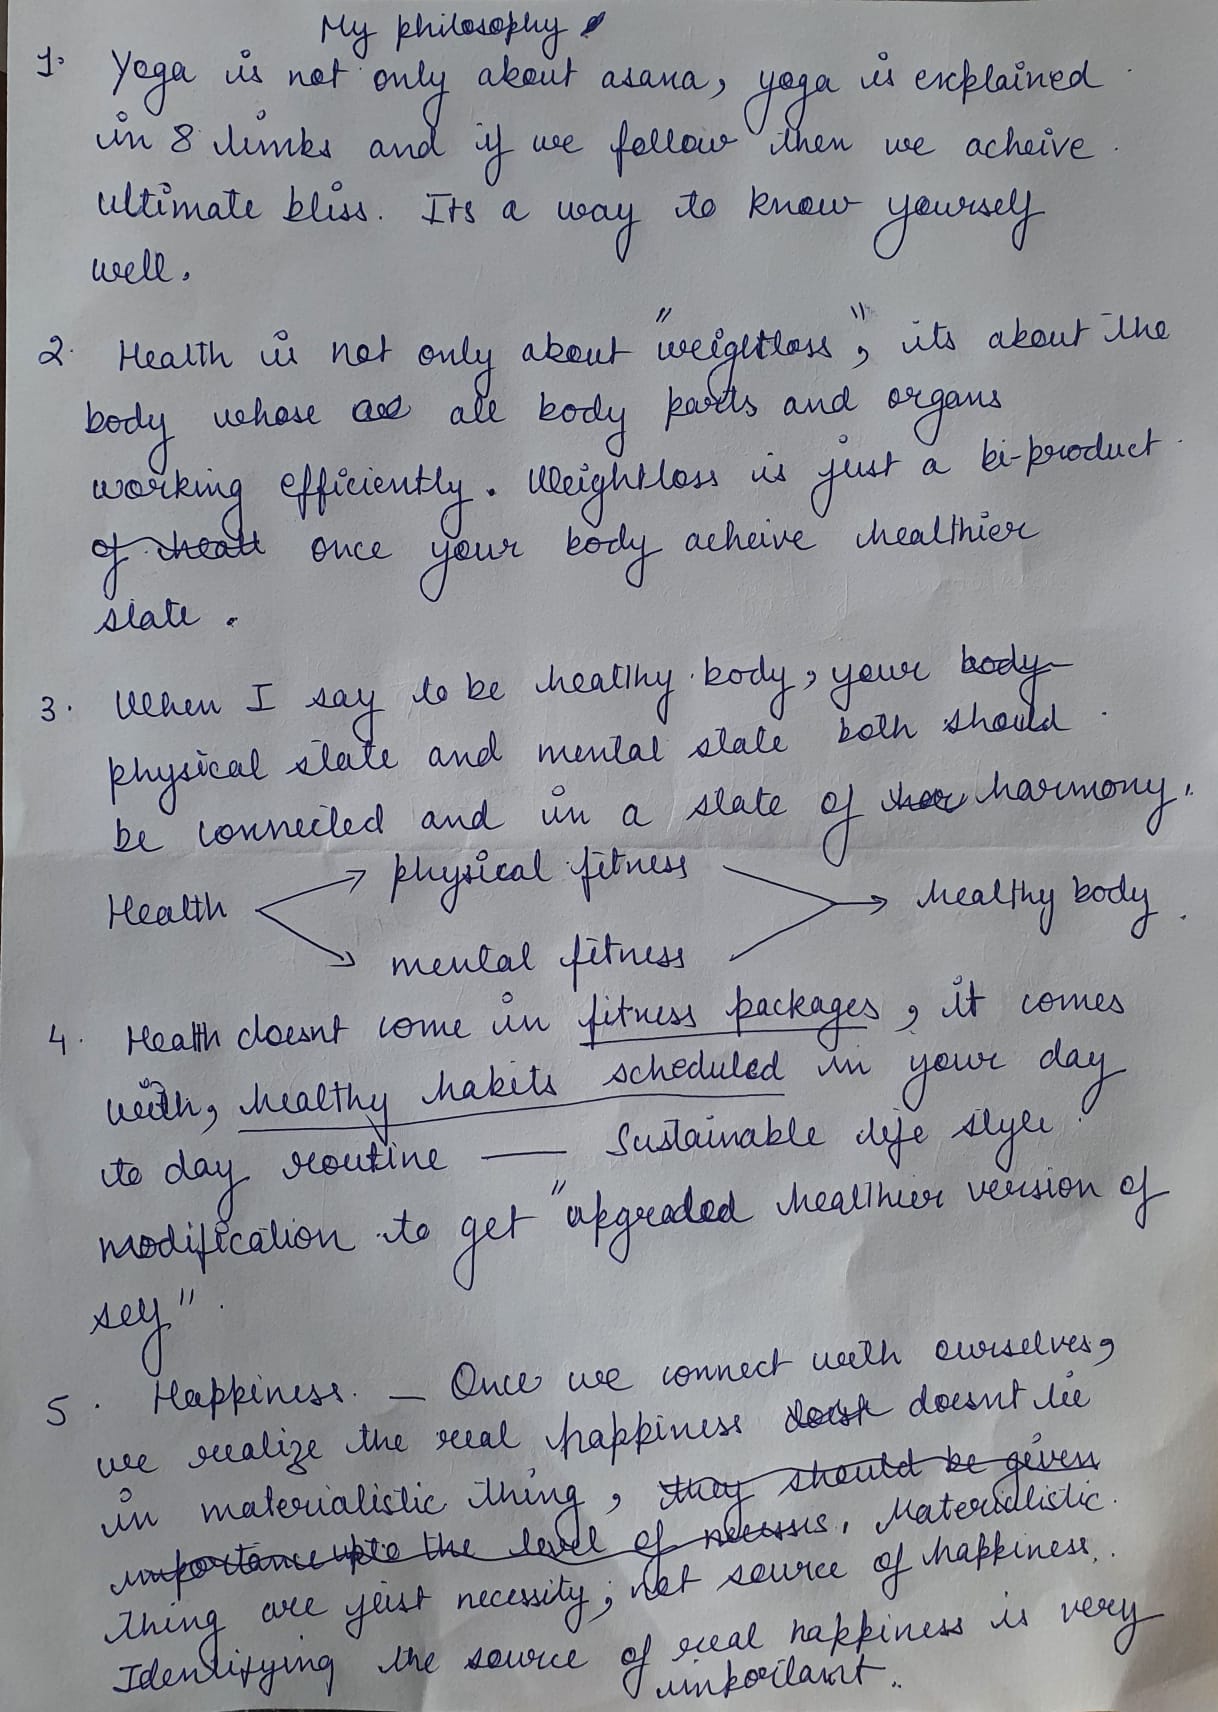 My philosophy
1. Yoga is not only about asana, yoga is explained
in 8 limbs and if we follow then we acheive
ultimate bliss. Its a way to know yourself
well.
2. Health is not only about "weightloss", its about the
body whose all body parts and organs
working efficiently. Weightloss is just a bi-product
of heatl once your body acheive healthier
state.
3. When I say to be healthy body, your body
physical state and mental state both should
be connected and in a state of har harmony.
physical fitness
Health healthy body
mental fitness
4. Health doesnt come in fitness packages, it comes
with, healthy habits scheduled in your day
to day routine — Sustainable life style
modification to get "upgraded healthier version of
self".
5. Happiness. — Once we connect with ourselves,
we realize the real happiness doesnt lie
in materialistic thing, they should be given
importance upto the level of necessis. Materialistic
thing are just necessity, not source of happiness.
Identifying the source of real happiness is very
important..